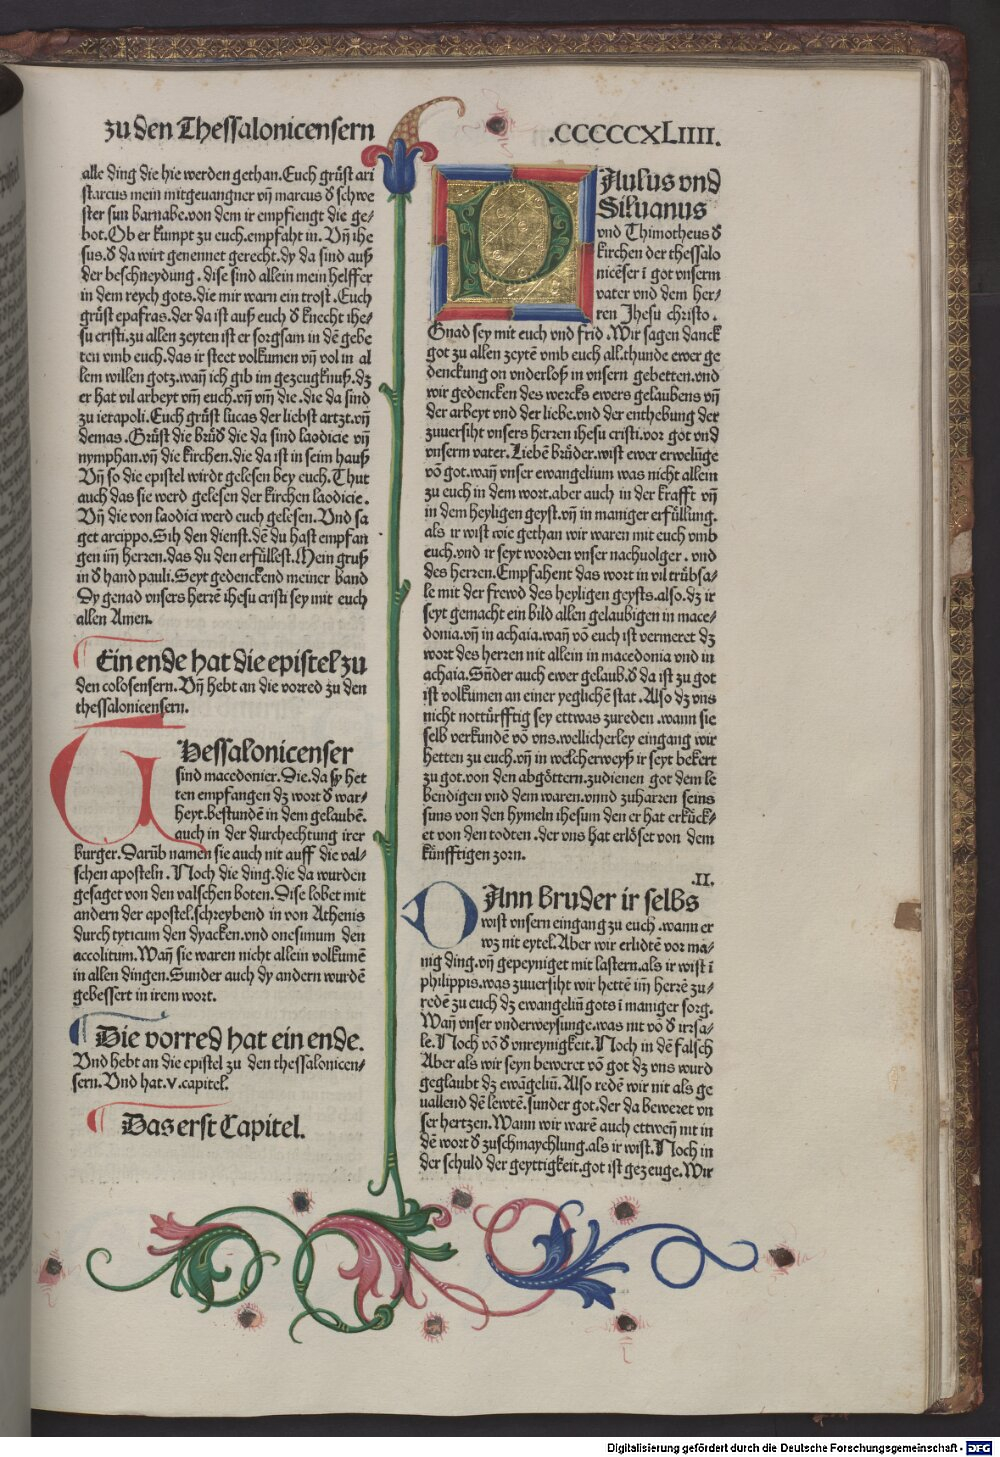 zu den Thessalonicensern
.CCCCCXLIIII.
alle ding die hie werden gethan. Euch grůst ari
starcus mein mitgeuangner vn̄ marcus d̕ schwe
ster sun barnabe. von dem ir empfiengt die ge-
bot. Ob er kumpt zu euch. empfaht in. Vn̄ ihe
sus. d̕ da wirt genennet gerecht. dy da sind auß
der beschneydung. dise sind allein mein helffer
in dem reych gots. die mir warn ein trost. Euch
grůst epafras. der da ist auß euch d̕ knecht ihe-
su cristi. zu allen zeyten ist er sorgsam in dē gebe
ten vmb euch. das ir steet volkumen vn̄ vol in al
lem willen gotz. wan̄ ich gib im gezeugknuß. dz
er hat vil arbeyt vm̄ euch. vn̄ vm̄ die. die da sind
zu ierapoli. Euch grůst lucas der liebst artzt. vn̄
demas. Grůst die brůd̕ die da sind laodicie vn̄
nymphan. vn̄ die kirchen. die da ist in seim hauß
Vn̄ so die epistel wirdt gelesen bey euch. Thut
auch das sie werd gelesen der kirchen laodicie.
Vn̄ die von laodici werd euch gelesen. Vnd sa
get arcippo. Sih den dienst. dē du hast empfan
gen im̄ herren. das du den erfüllest. Mein gruß
in d̕ hand pauli. Seyt gedenckend meiner band
Dy genad vnsers herrē ihesu cristi sey mit euch
allen Amen.
Ein ende hat die epistel zu
den colosensern. Vn̄ hebt an die vorred zu den
thessalonicensern.
THessalonicenser
sind macedonier. Die. da sy het
ten empfangen dz wort d̕ war-
heyt. bestunden in dem gelaubē.
auch in der durchechtung irer
burger. Darüb namen sie auch nit auff die val-
schen aposteln. Noch die ding. die da wurden
gesaget von den valschen boten. Dise lobet mit
andern der apostel. schreybend in von Athenis
durch tyticum den dyacken. vnd onesimum den
accolitum. Wan̄ sie waren nicht allein volkumē
in allen dingen. Sunder auch dy andern wurdē
gebessert in irem wort.
Die vorred hat ein ende.
Vnd hebt an die epistel zu den thessalonicen-
sern. Vnd hat. v. capitel.
Das erst Capitel.
PAulus vnd
Siluanus
vnd Thimotheus d̕
kirchen der thessalo
nicēser ī got vnserm
vater vnd dem her-
ren Jhesu christo.
Gnad sey mit euch vnd frid. Wir sagen danck
got zu allen zeytē vmb euch all. thunde ewer ge
denckung on vnderloß in vnsern gebetten. vnd
wir gedencken des wercks ewers gelaubens vn̄
der arbeyt vnd der liebe. vnd der enthebung der
zuuersiht vnsers herren ihesu cristi. vor got vnd
vnserm vater. Liebē brüder. wist ewer erwelūge
vō got. wan̄ vnser ewangelium was nicht allein
zu euch in dem wort. aber auch in der krafft vn̄
in dem heyligen geyst. vn̄ in maniger erfüllung.
als ir wist wie gethan wir waren mit euch vmb
euch. vnd ir seyt worden vnser nachuolger. vnd
des herren. Empfahent das wort in vil trübsa-
le mit der frewd des heyligen geysts. also. dz ir
seyt gemacht ein bild allen gelaubigen in mace-
donia. vn̄ in achaia. wan̄ vō euch ist vermeret dz
wort des herren nit allein in macedonia vnd in
achaia. Sūder auch ewer gelaub. d̕ da ist zu got
ist volkumen an einer yeglichē stat. Also dz vns
nicht nottürfftig sey ettwas zureden. wann sie
selb verkundē vō vns. wellicherley eingang wir
hetten zu euch. vn̄ in welcherweyß ir seyt bekert
zu got. von den abgöttern. zudienen got dem le
bendigen vnd dem waren. vnnd zuharren seins
suns von den hymeln ihesum den er hat erkück-
et von den todten. der vns hat erlöset von dem
künfftigen zorn.
.II.
WAnn bruder ir selbs
wist vnsern eingang zu euch. wann er
wz nit eytel. Aber wir erlidtē vor ma-
nig ding. vn̄ gepeyniget mit lastern. als ir wist ī
philippis. was zuuersiht wir hettē im̄ herrē zu-
redē zu euch dz ewangeliū gots ī maniger sorg.
Wan̄ vnser vnderweysunge. was nit vō d̕ irrsa-
le. Noch vō d̕ vnreynigkeit. Noch in dē falsch
Aber als wir seyn beweret vō got dz vns wurd
geglaubt dz ewāgeliū. Also redē wir nit als ge
uallend dē lewtē. sunder got. der da beweret vn
ser hertzen. Wann wir warē auch ettwen̄ nit in
dē wort d̕ zuschmaychlung. als ir wist. Noch in
der schuld der geyttigkeit. got ist gezeuge. Wir
Digitalisierung gefördert durch die Deutsche Forschungsgemeinschaft - DFG